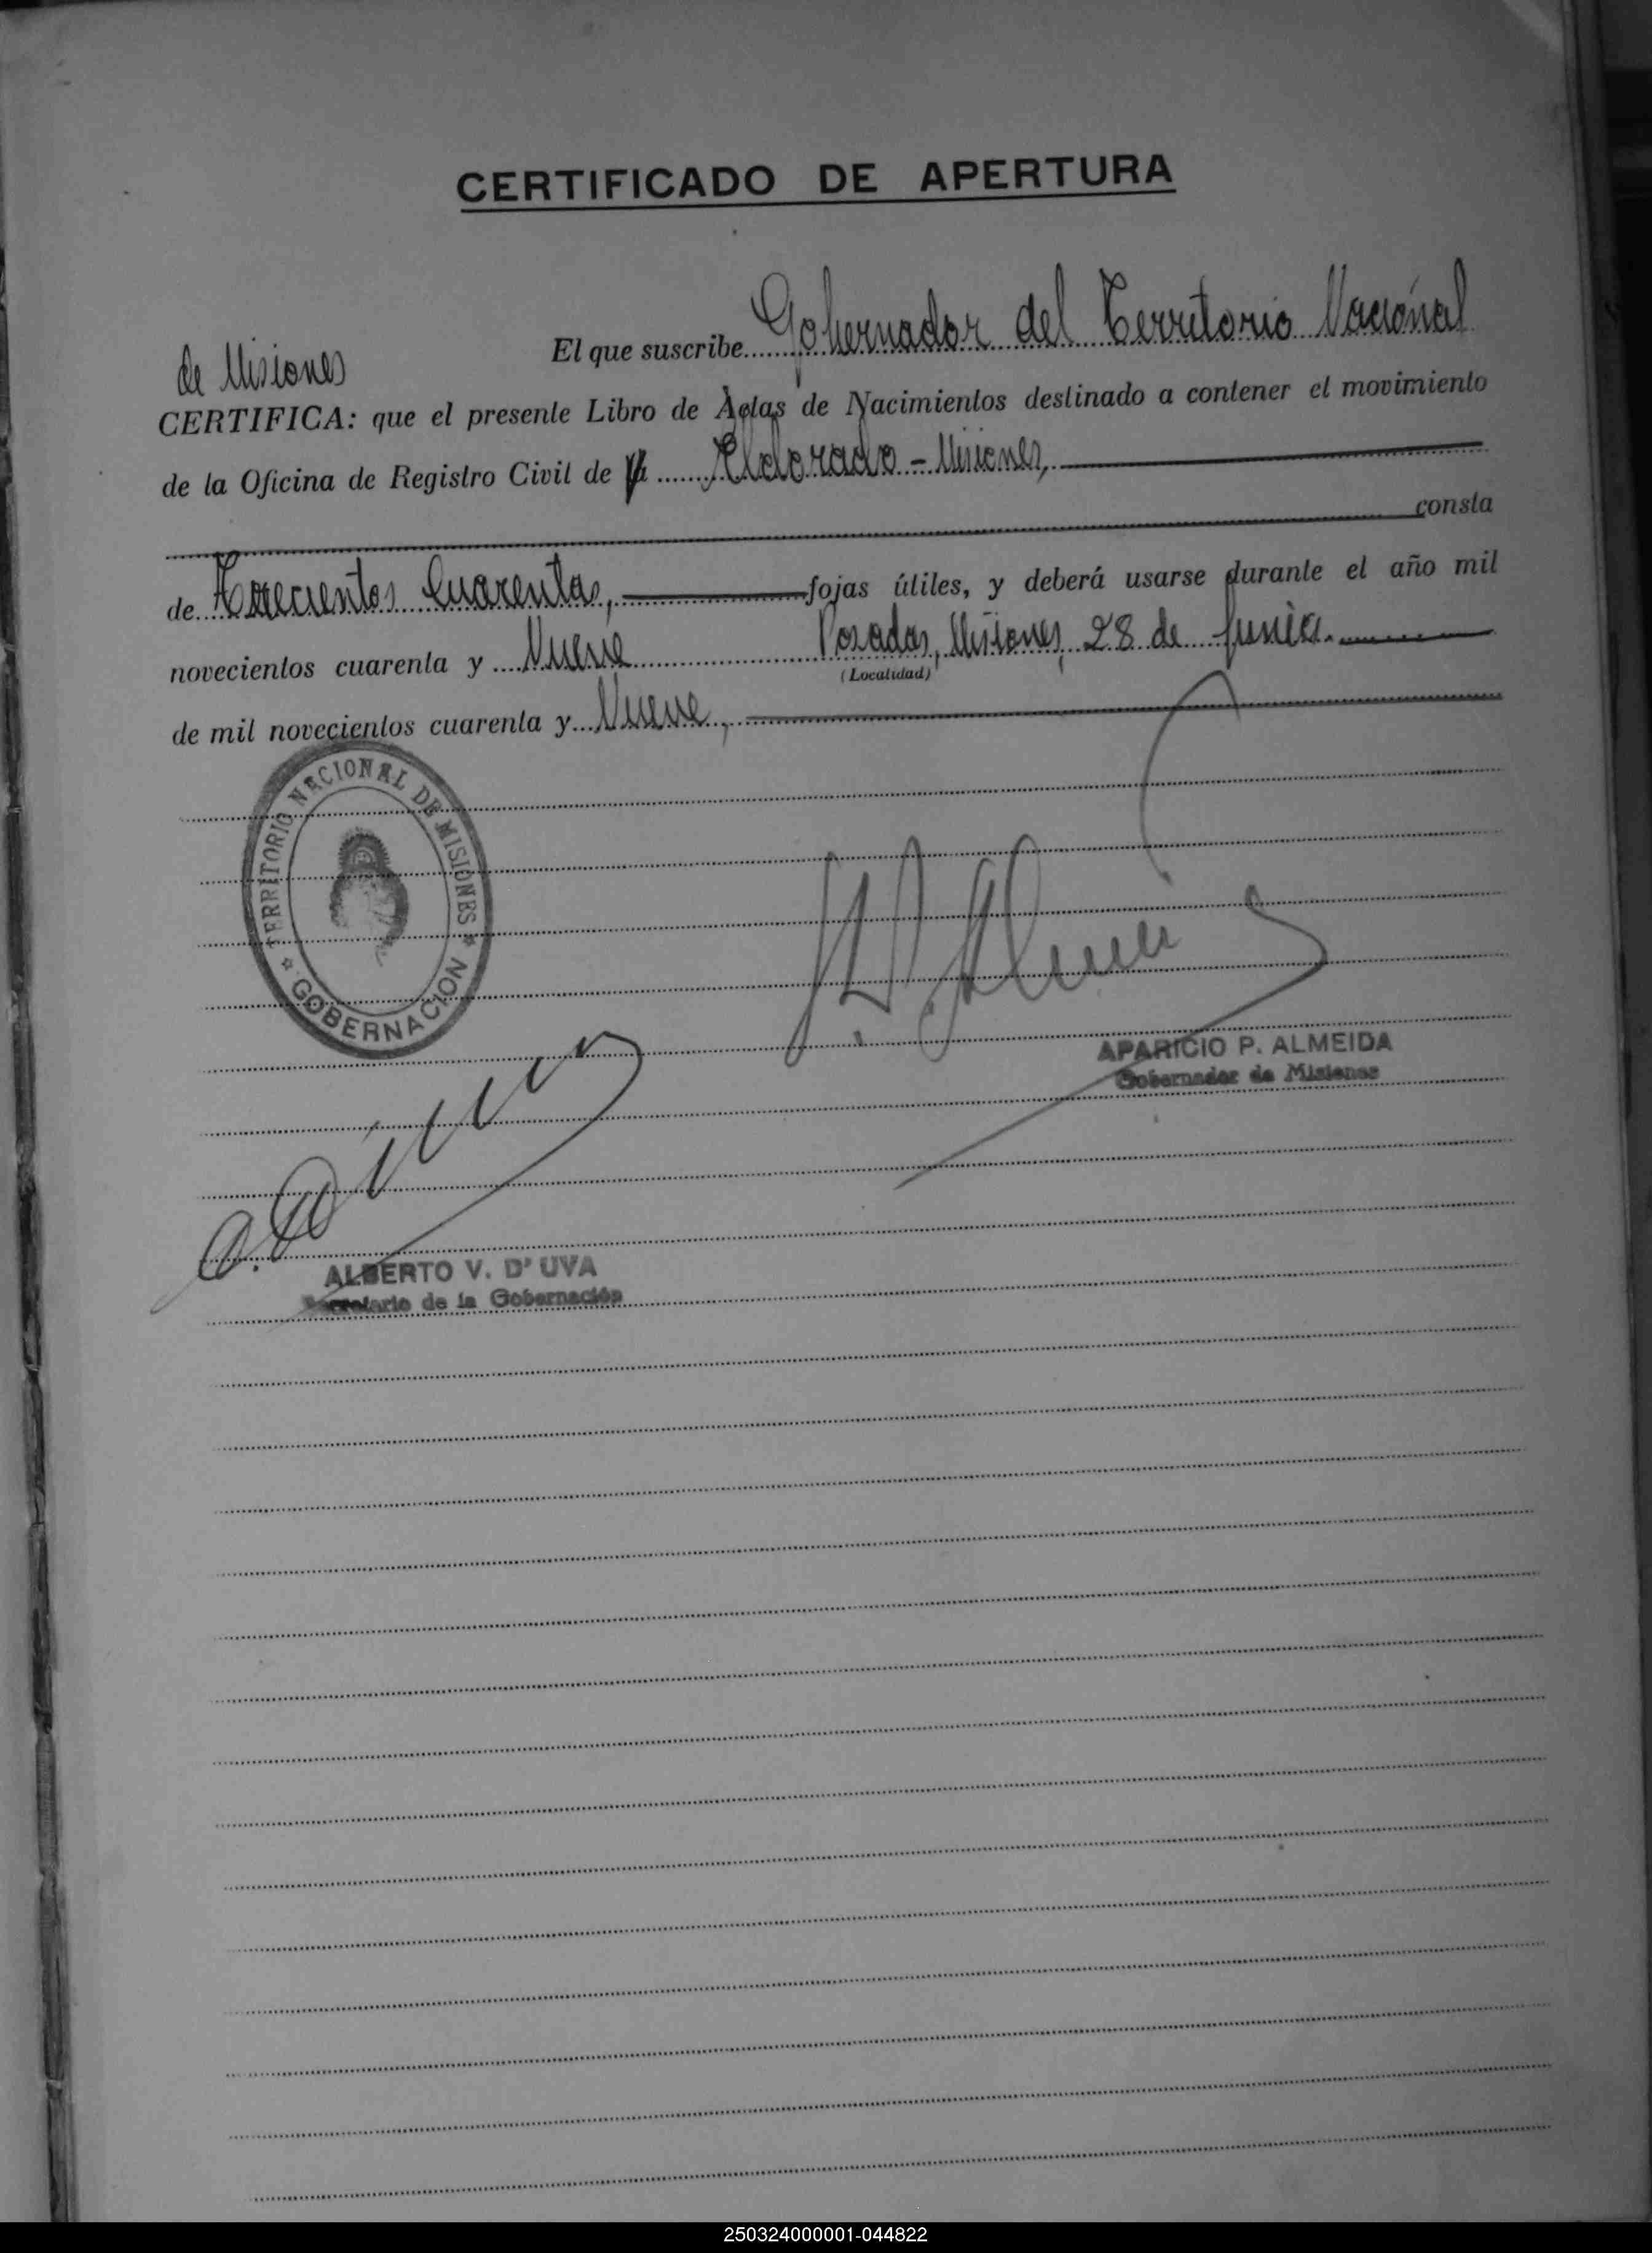 CERTIFICADO DE APERTURA
El que suscribe Gobernador del Territorio Nacional
de Misiones
CERTIFICA: que el presente Libro de Actas de Nacimientos destinado a contener el movimiento
de la Oficina de Registro Civil de Eldorado - Misiones,
consta
de Trescientos Cuarentas, fojas útiles, y deberá usarse durante el año mil
novecientos cuarenta y Nueve Posadas, Misiones, 28 de Junio.
(Localidad)
de mil novecientos cuarenta y Nueve,
TERRITORIO NACIONAL DE MISIONES
GOBERNACION
APARICIO P. ALMEIDA
Gobernador de Misiones
ALBERTO V. D' UVA
Secretario de la Gobernación
250324000001-044822